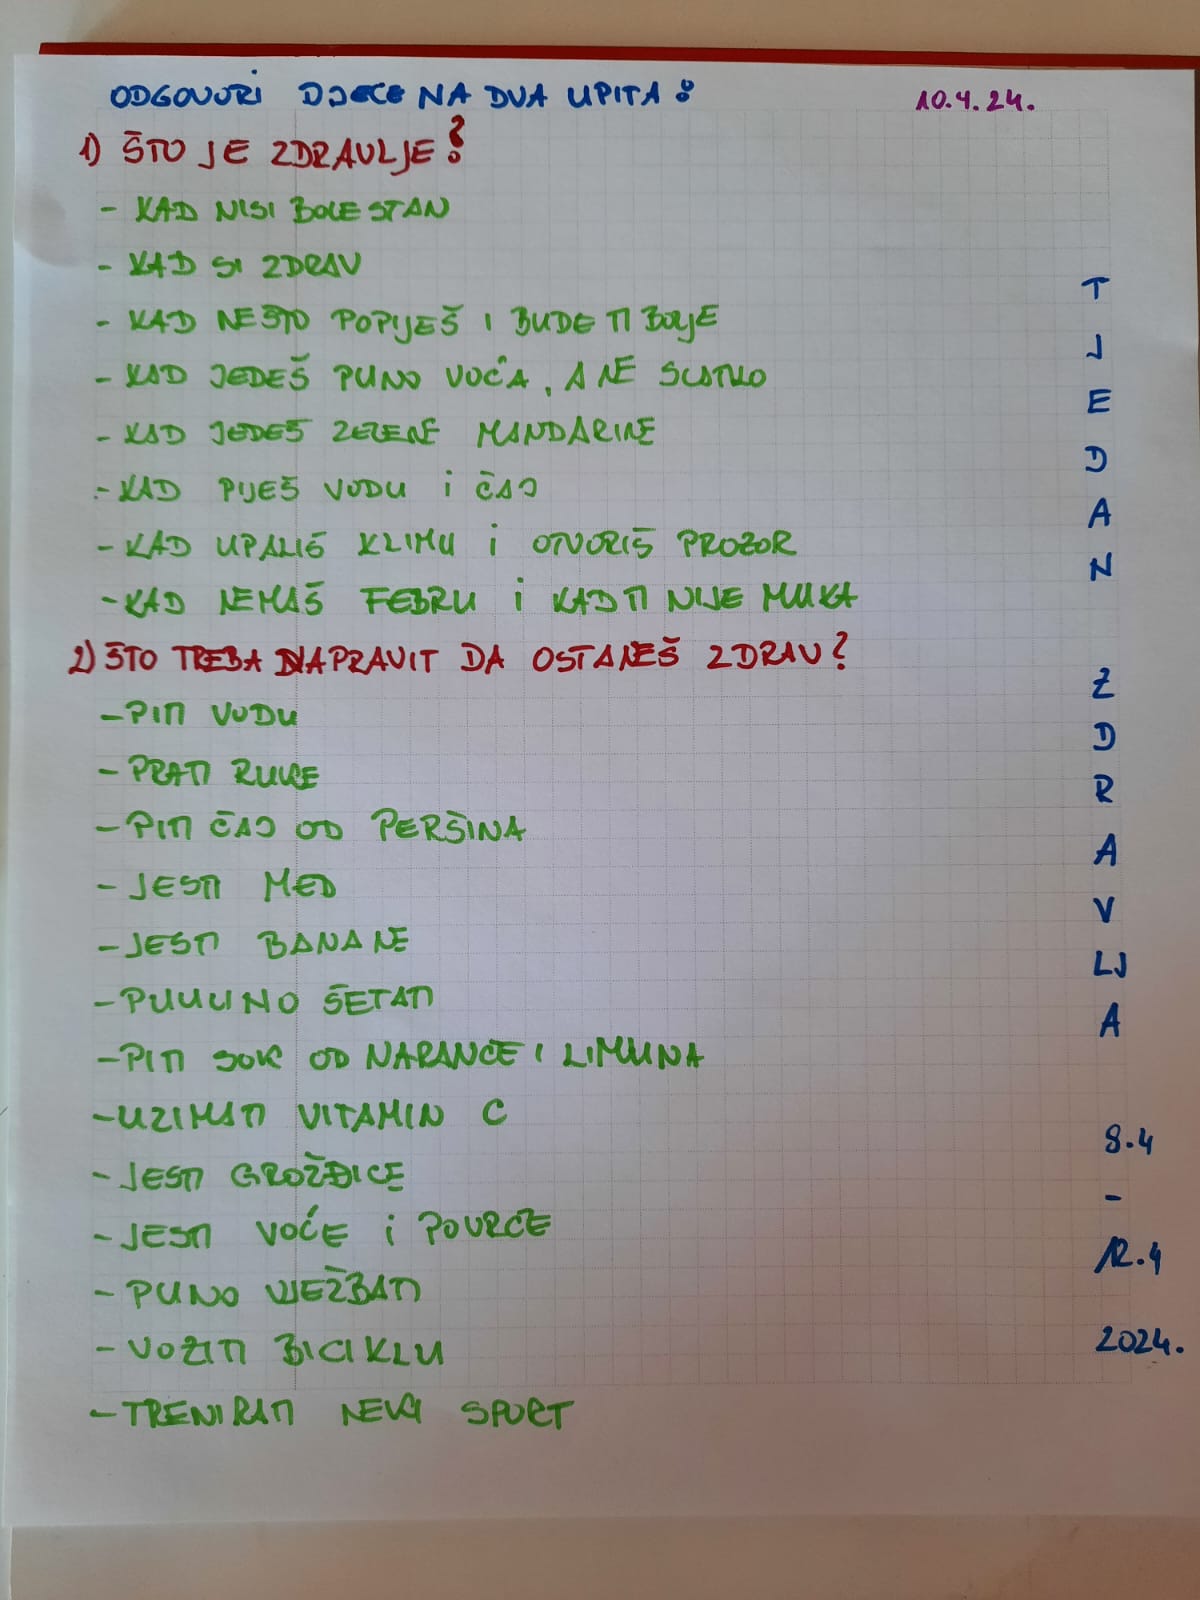 ODGOVORI DJECE NA DVA UPITA:
10.4.24.
1) ŠTO JE ZDRAVLJE?
- KAD NISI BOLESTAN
- KAD SI ZDRAV
- KAD NEŠTO POPIJEŠ I BUDE TI BOLJE
- KAD JEDEŠ PUNO VOĆA, A NE SLATKO
- KAD JEDEŠ ZELENE MANDARINE
- KAD PIJEŠ VODU I ČAJ
- KAD UPALIŠ KLIMU I OTVORIŠ PROZOR
- KAD NEMAŠ FEBRU I KAD TI NIJE MUKA
2) ŠTO TREBA NAPRAVIT DA OSTANEŠ ZDRAV?
- PITI VODU
- PRATI RUKE
- PITI ČAJ OD PERŠINA
- JESTI MED
- JESTI BANANE
- PUUUNO ŠETATI
- PITI SOK OD NARANČE I LIMUNA
- UZIMATI VITAMIN C
- JESTI GROŽĐICE
- JESTI VOĆE I POVRĆE
- PUNO VJEŽBATI
- VOZITI BICIKLU
- TRENIRATI NEKI SPORT
T
J
E
D
A
N
Z
D
R
A
V
LJ
A
8.4
-
12.4
2024.